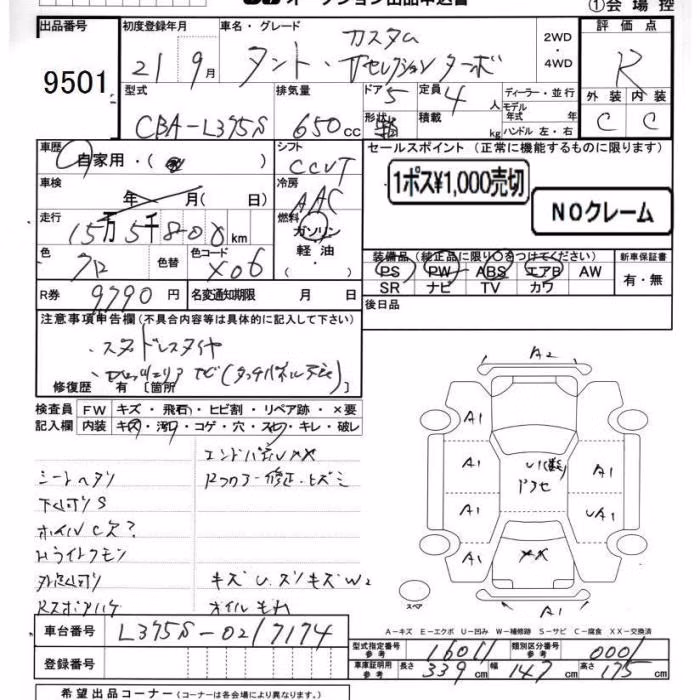 オークション出品申込書
①会場控
出品番号
9501
初度登録年月
21年9月
車名・グレード
カスタム
タント・Vセレクションターボ
2WD
・
4WD
評価点
R
外装 内装
C C
型式
CBA-L375S
排気量
650cc
ドア
5
形状
定員
4人
積載
kg
ディーラー・並行
モデル
年式 年
ハンドル 左・右
車歴
自家用・( )
シフト
CCVT
車検
年 月( 日)
冷房
AAC
走行
15万5千800km
燃料
ガソリン
軽油
・( )
色
クロ
色替
色コード
X06
R券
9790円
名変通知期限 月 日
セールスポイント (正常に機能するものに限ります)
1ポス¥1,000売切
NOクレーム
装備品 (純正品に限り○をつけてください)
PS PW ABS エアB AW
SR ナビ TV カワ
新車保証書
有・無
後日品
注意事項申告欄(不具合内容等は具体的に記入して下さい)
・スタッドレスタイヤ
修復歴 有 [箇所 ]
検査員
記入欄
FW キズ・飛石・ヒビ割・リペア跡・×要
内装 キズ・汚レ・コゲ・穴・スレ・キレ・破レ
シートヘタリ
下廻りサビS
ホイルC欠?
Hライトクモリ
キズU.ズリキズW2
オイルモレ
A2
A1
A1
A1
A1
A1
UA1
A1
A1
××
スペア
A-キズ E-エクボ U-凹み W-補修跡 S-サビ C-腐食 XX-交換済
車台番号
L375S-0217174
登録番号
型式指定番号
参考
16011
類別区分番号
参考
0001
車庫証明用
参考
長さ 339cm 幅 147cm 高さ 175cm
希望出品コーナー (コーナーは各会場により異なります。)